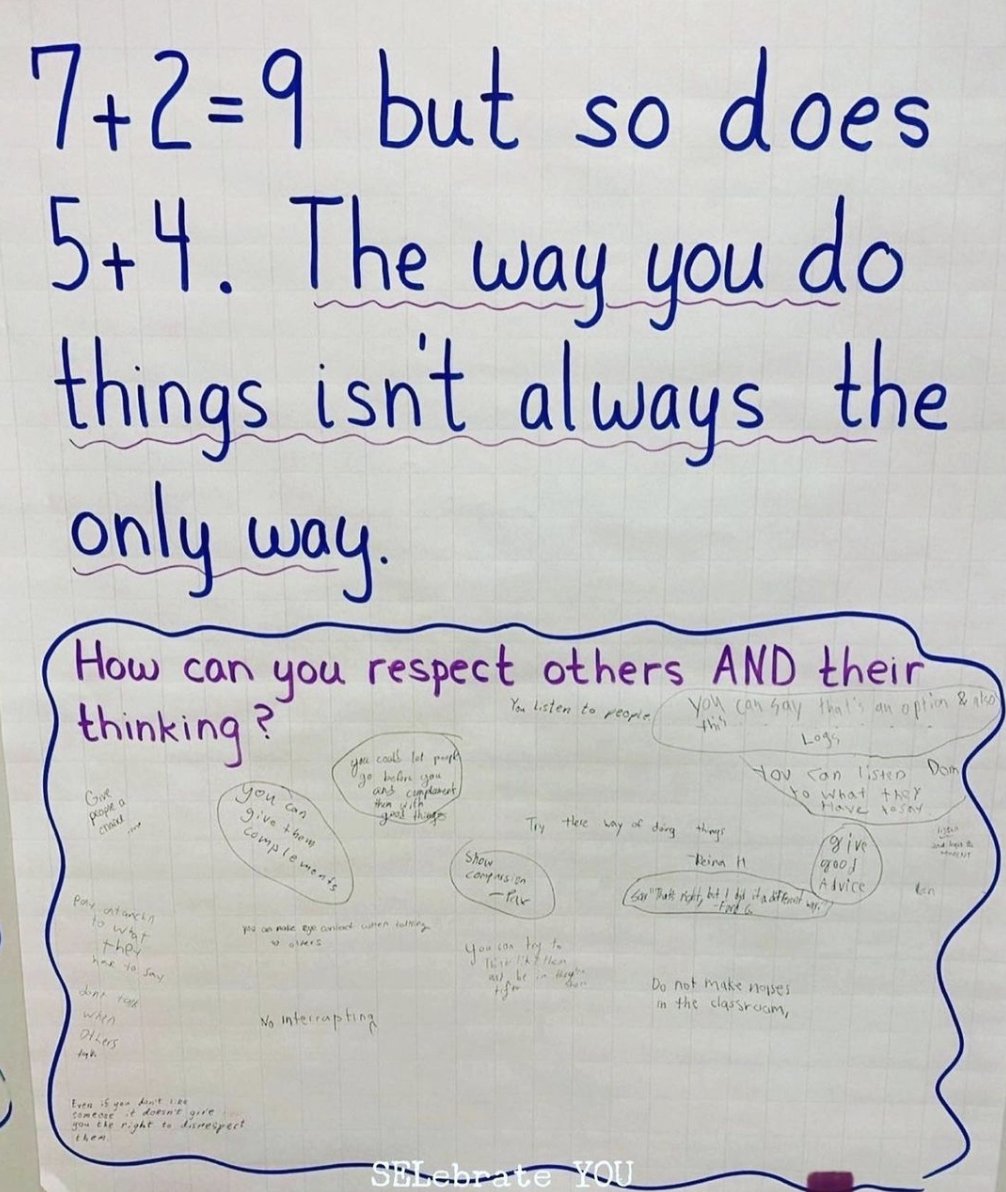 7+2=9 but so does
5+4. The way you do
things isn't always the
only way.
How can you respect others AND their
thinking?
You Listen to people
you can say that's an option & also
this
Logs
you could let people
go before you
and complement
them with
good things
You can listen
to what they
Have to say
Dom
Give
people a
you can
give them
complements
Try there way of doing things
Reina H
give
good
Advice
Show
Say "That's right, but I did it a different way."
Pay
to what
they
has to say
you can make eye contact when talking
to others
You can try to
be in
Do not make noises
in the classroom,
dont talk
when
others
talk
No interrupting
Even if you don't like
someone it doesn't give
you the right to disrespect
them.
SELebrate YOU